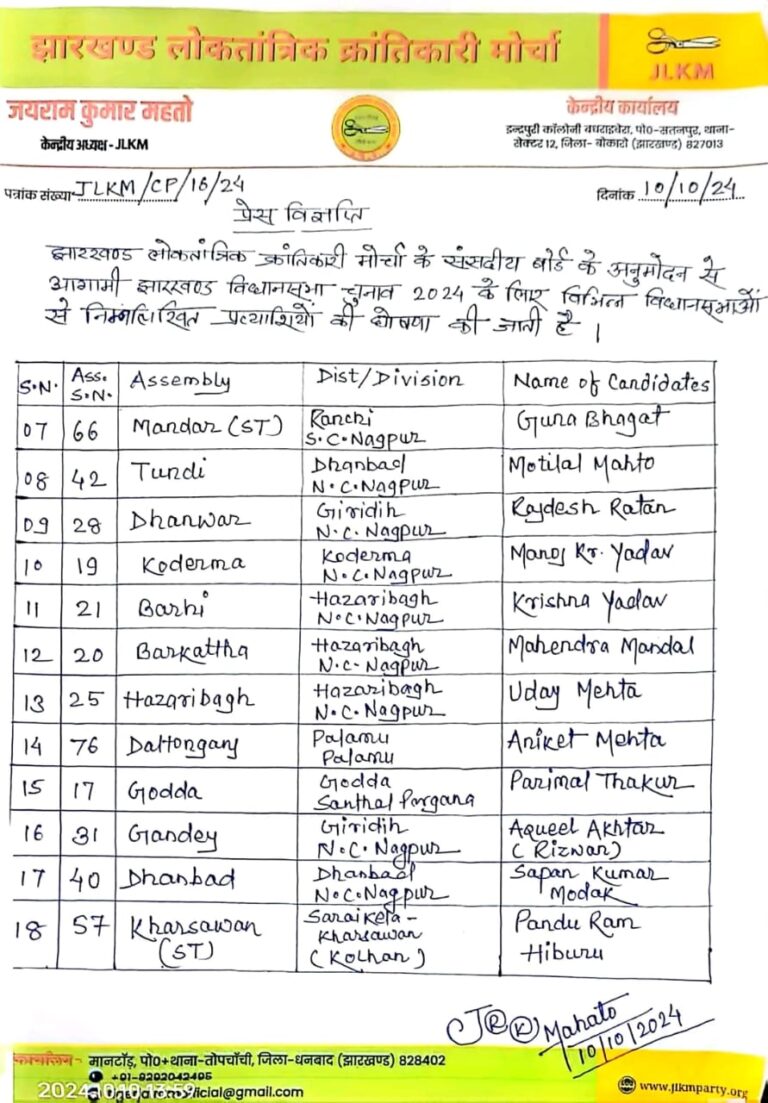 झारखण्ड लोकतांत्रिक क्रांतिकारी मोर्चा
JLKM
जयराम कुमार महतो
केन्द्रीय अध्यक्ष - JLKM
केन्द्रीय कार्यालय
इन्द्रपुरी कॉलोनी बघराइबेरा, पो0-सतनपुर, थाना-
सेक्टर 12, जिला- बोकारो (झारखण्ड) 827013
पत्रांक संख्या JLKM/CP/16/24
दिनांक 10/10/24
प्रेस विज्ञप्ति
झारखण्ड लोकतांत्रिक क्रांतिकारी मोर्चा के संसदीय बोर्ड के अनुमोदन से
आगामी झारखण्ड विधानसभा चुनाव 2024 के लिए विभिन्न विधानसभाओं
से निम्नलिखित प्रत्याशियों की घोषणा की जाती है ।
S.N. Ass. S.N. Assembly Dist/Division Name of Candidates
07 66 Mandar (ST) Ranchi S.C.Nagpur Guna Bhagat
08 42 Tundi Dhanbad N.C.Nagpur Motilal Mahto
09 28 Dhanwar Giridih N.C.Nagpur Rajdesh Ratan
10 19 Koderma Koderma N.C.Nagpur Manoj Kr. Yadav
11 21 Barhi Hazaribagh N.C.Nagpur Krishna Yadav
12 20 Barkattha Hazaribagh N.C-Nagpur Mahendra Mandal
13 25 Hazaribagh Hazaribagh N.C.Nagpur Uday Mehta
14 76 Daltonganj Palamu Palamu Aniket Mehta
15 17 Godda Godda Santhal Pargana Parimal Thakur
16 31 Gandey Giridih N.C.Nagpur Aqueel Akhtar (Rizwan)
17 40 Dhanbad Dhanbad N.C.Nagpur Sapan Kumar Modak
18 57 Kharsawan (ST) Saraikela-Kharsawan (Kolhan) Pandu Ram Hiburu
JRK Mahato
10/10/2024
कार्यालय- मानटाँड़, पो0+थाना-तोपचाँची, जिला-धनबाद (झारखण्ड) 828402
+91-9202042495
www.jlkmparty.org